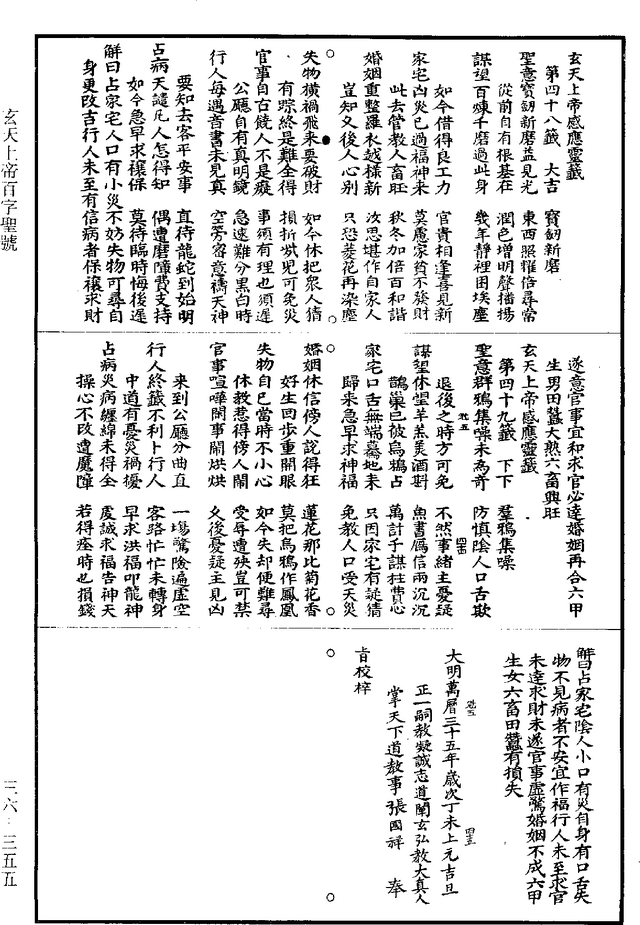 玄天上帝感應靈籤
第四十八籤　大吉　寶劒新磨
聖意寶劒新磨益見光　東西照耀倍尋常
從前自有根基在　潤色增明聲播揚
謀望百煉千磨過此身　幾年靜裡困埃塵
如今借得良工力　官貴相逢喜見新
家宅凶災已過福神来　莫慮家貧不發財
此去管教人畜旺　秋冬加倍百和諧
婚姻重整羅衣越樣新　汝思堪作自家人
豈知又後人心別　只恐菱花再染塵
失物橫禍飛来要破財　如今休把衆人猜
有踪終是難全得　損折焭兇可免災
官事自古饒人不是癡　事須有理也須遲
公廳自有真明鏡　急速難分黑白時
行人每遇音書未見真　空旁密意禱天神
要知去客平安事　直待龍蛇到始明
占病天譴凡人怎得知　偶遭磨障費支持
如今急早求禳保　莫待臨時悔後遲
解曰占家宅人口有小災不妨失物可尋自
身更改吉行人未至有信病者保禳求財
遂意官事宜和求官必達婚姻再合六甲
生男田蠶大熟六畜興旺
玄天上帝感應靈籤
第四十九籤　下下　羣鴉集噪
聖意群鴉集噪未為奇　防慎陰人口舌欺
退後之時方可免　不然事緒主憂疑
謀望休望羊羔美酒斟　魚書鴈信兩沉沉
鵲巢已被烏鴉占　萬計千謀枉費心
家宅口舌無端驀地来　只因家宅有疑猜
歸来急早求神福　免教人口受天災
婚姻休信傍人說得狂　蓮花那比菊花香
好生回步重開眼　莫把烏鴉作鳳凰
失物自已當時不小心　如今失却便難尋
休教惹得傍人鬧　受辱遭殃豈可禁
官事喧嘩鬧事鬧烘烘　又後憂疑主見凶
来到公廳分曲直　一場驚險遍虛空
行人終籤不利卜行人　客路忙忙未轉身
中道有憂災禍擾　早求洪福叩龍神
占病災病纏綿未得全　虔誠求福告神天
操心不改遭魔障　若得痊時也損錢
解曰占家宅陰人小口有災自身有口舌失
物不見病者不安宜作福行人未至求官
未達求財未遂官事虛驚婚姻不成六甲
生女六畜田蠶有損失
大明萬曆三十五年歲次丁未上元吉旦
正一嗣教凝誠志道闡玄弘教大真人
掌天下道教事張國祥　奉
旨校梓
玄天上帝百字聖號
三六·三五五